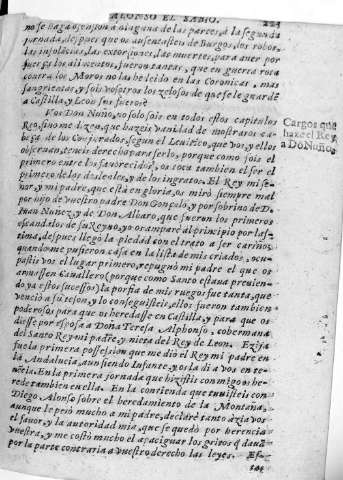 ALONSO EL SABIO. 224
no se haga ofension a ninguna de las partes, à la segunda
jornada, despues que os ausentasteis de Burgos, los robos,
las insolencias, las extorsiones, las muertes, para aver por
fuerça los alimentos, fueron tantas, que en guerra rota
contra los Moros no las he leido en las Coronicas, mas
sangrientas, y sois vosotros los zelosos de que se le guardē
a Castilla, y Leon sus fueros?
Vos Don Nuño, no solo sois en todos estos capitulos
Reo, sino me dizen, que hazeis vanidad de mostraros ca-
beça de los Conjurados, segun el Levitico, que vos, y ellos
observan, teneis derecho para serlo, porque como sois el
primero entre los favorecidos, os toca tambien el ser el
primero de los desleales, y de los ingratos. El Rey mi se-
ñor, y mi padre, que està en gloria, os mirò siempre mal
por hijo de vuestro padre Don Gonçalo, y por sobrino de D.
Fernan Nuñez, y de Don Albaro, que fueron los primeros
escandalos de su Reyno, yo os amparè al principio por las-
tima, despues llegò la piedad con el trato a ser cariño,
quando me pusieron casa en la lista de mis criados, ocu-
pasteis vos el lugar primero, repugnò mi padre el que os
armassen Cavallero (porque como Santo estava previen-
do ya estos sucessos) la porfia de mis ruegos fue tanta, que
venciò a su teson, y lo conseguisteis, ellos fueron tambien
poderosos para que os heredasse en Castilla, y para que os
diesse por esposa a Doña Teresa Alphonso, cohermana
del Santo Rey mi padre, y nieta del Rey de Leon. Ezija
fue la primera possession que me diò el Rey mi padre en
la Andalucia, aun siendo Infante, y os la di a vos en te-
nencia. En la primera jornada que hizisteis conmigo os he-
redè tambien en ella. En la contienda que tuvisteis con
Diego Alonso sobre el heredamiento de la Montaña,
aunque le pesò mucho a mi padre, declarè tanto àzia vos
el favor, y la autoridad mia, que se quedò por herencia
vuestra, y me costò mucho el apaciguar los gritos q̄ davā
por la parte contraria a vuestro derecho las leyes. Es-
Cargos que
haze el Rey
a Dō Nuño.